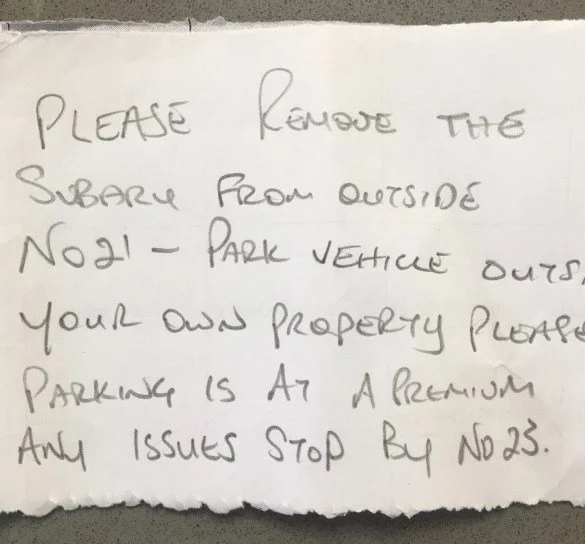 PLEASE REMOVE THE
SUBARU FROM OUTSIDE
NO21 - PARK VEHICLE OUTS
YOUR OWN PROPERTY PLEASE
PARKING IS AT A PREMIUM
ANY ISSUES STOP BY NO 23.